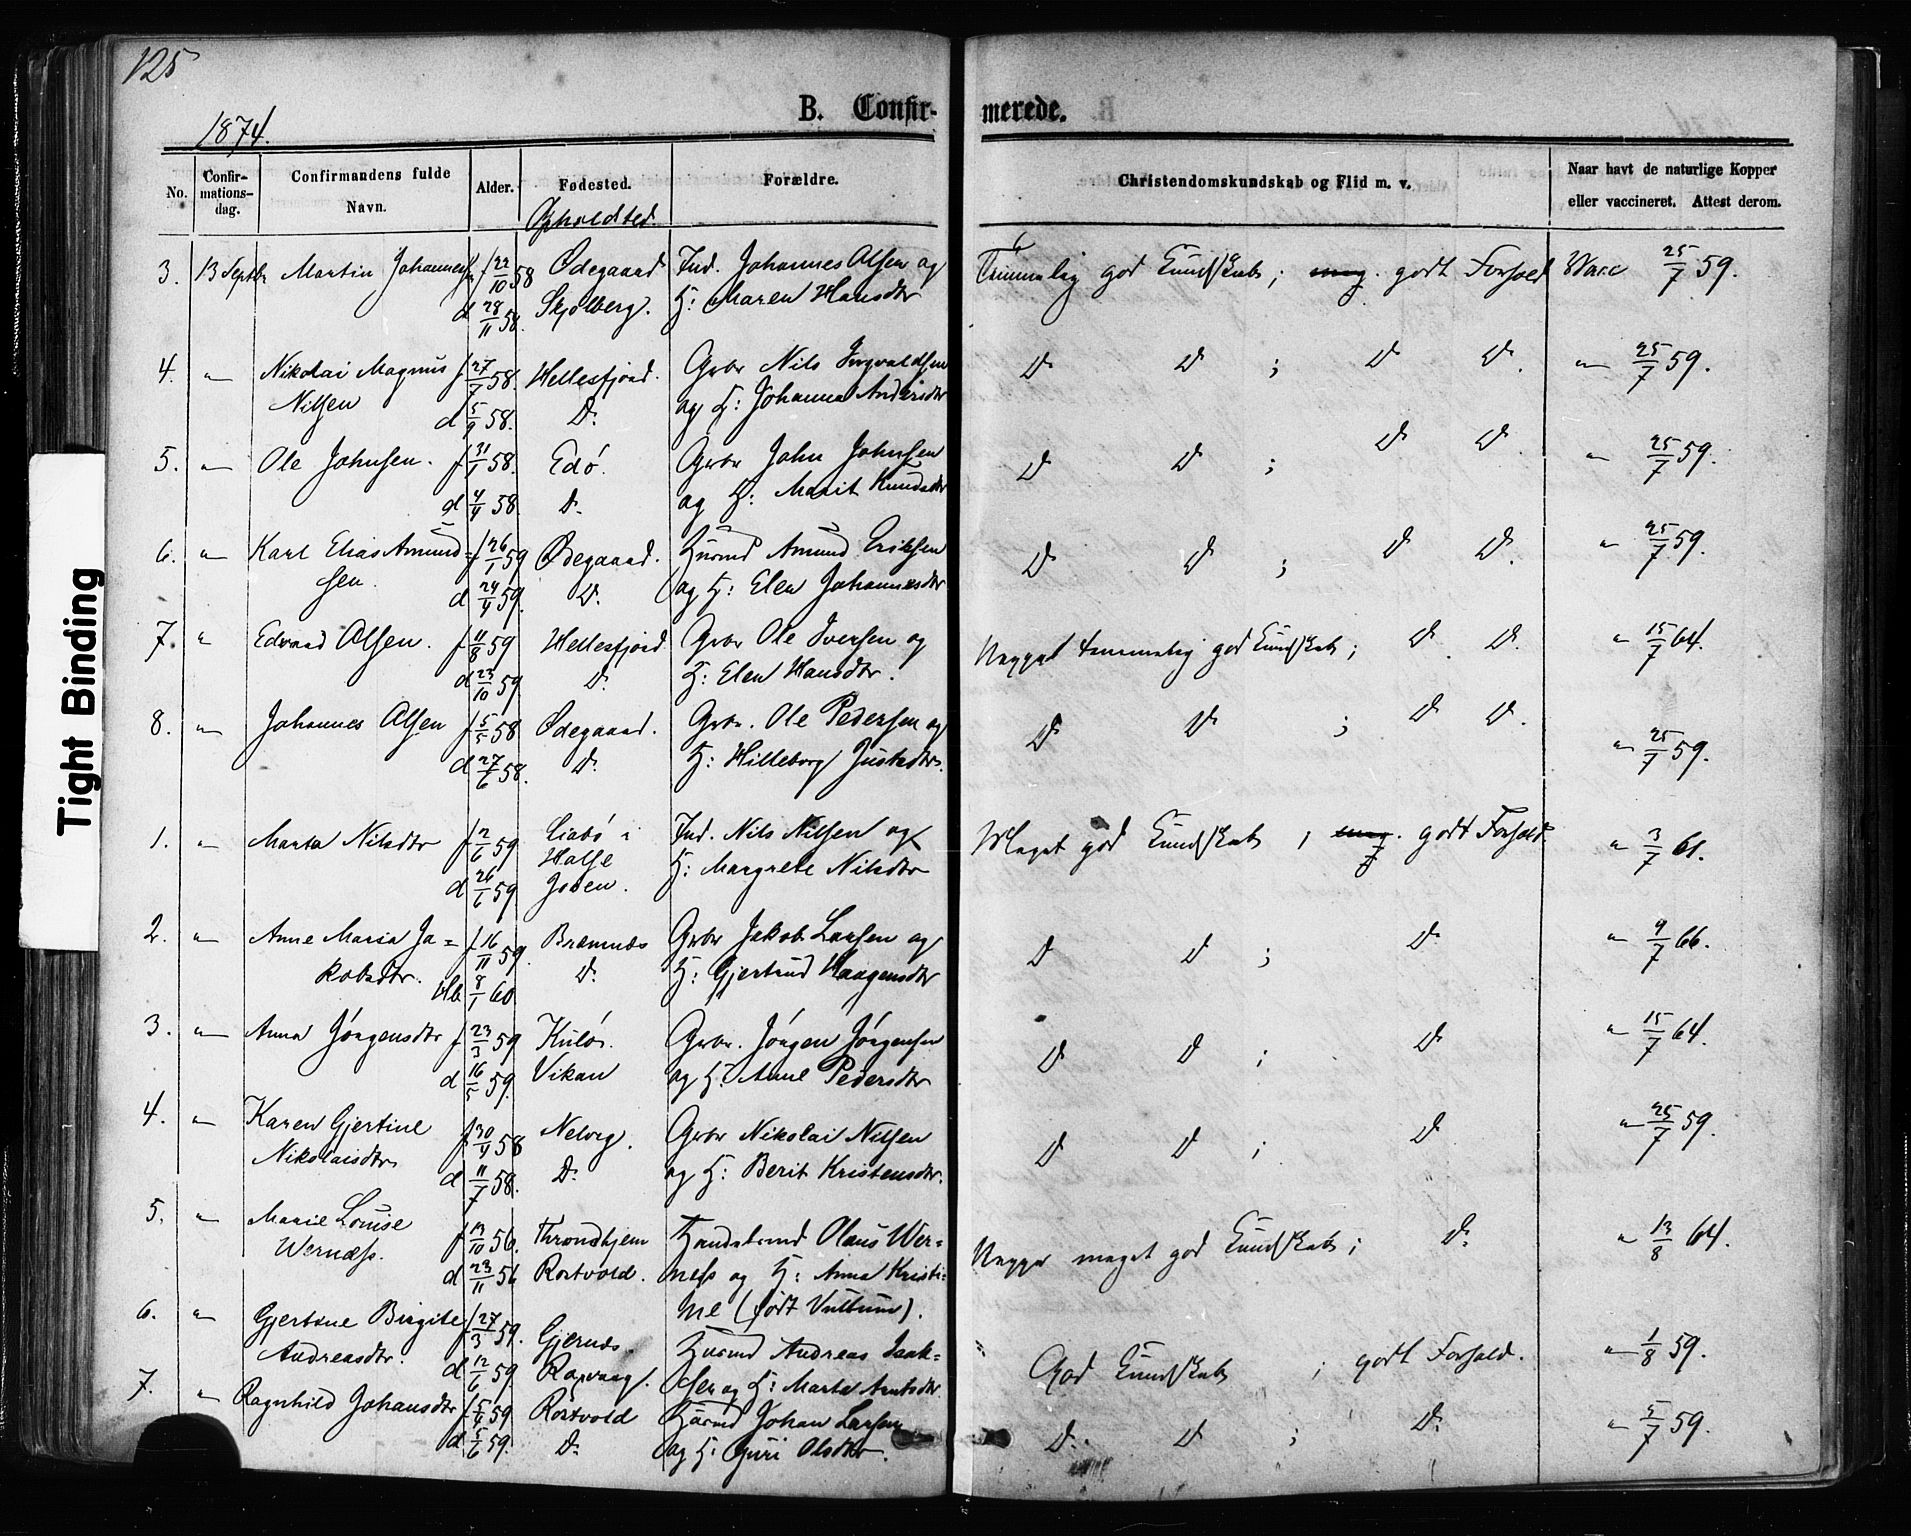 125
1874.
B. Confir-
merede.
No.
Confir-
mations-
dag.
Confirmandens fulde
Navn.
Alder.
Fødested.
Opholdsted.
Forældre.
Christendomskundskab og Flid m. v.
Naar havt de naturlige Kopper
eller vaccineret. Attest derom.
3. 13 Septbr Martin Johannessen f 22/10 58 Ødegaard Ind. Johannes Olsen og Temmelig god Kundskab; meg. godt Forhold Vacc 25/7 59.
d 28/11 58. Skjølberg. H: Maren Hansdtr
4. " Nikolai Magnus f 27/7 58. Hellesfjord. Grbr Nils Ingvaldsen D D ; D D. " 25/7 59.
Nilsen d 5/9 58. D. og H: Johanna Andersdtr
5. " Ole Johnsen. f 31/1 58. Edø. Grbr John Johnsen D D ; D D. " 25/7 59.
d 4/4 58 D. og H: Marit Knudsdtr
6. " Karl Elias Amund= f 26/1 59 Ødegaard. Husmd Amund Eriksen D D ; D D. " 25/7 59.
sen. d 24/4 59. D. og H: Elen Johannesdtr
7. " Edvard Olsen. f 11/8 59 Hellesfjord Grbr Ole Iversen og Neppe temmelig god Kundskab; D D. " 15/7 64.
d 23/10 59 D. H: Elen Hansdtr.
8. " Johannes Olsen f 5/5 58 Ødegaard. Grbr. Ole Pedersen og D D ; D D. " 25/7 59.
d 27/6 58. D. H: Hilleborg Justsdtr.
1. " Marta Nilsdtr f 2/6 59 Liabø i Ind. Nils Nilsen og Meget god Kundskab; meg. godt Forhold. " 3/7 61.
Halse
d 26/6 59 Joben. H: Margrete Nilsdtr
2. " Anne Maria Ja= f 16/11 59. Bremnæs Grbr Jakob Larsen og D D ; D " 9/7 66.
kobsdtr. Hb 8/1 60. D. H: Gjertrud Haagensdtr
3. " Anna Jørgensdtr f 23/3 59 Kulø. Grbr. Jørgen Jørgensen D D ; D " 15/7 64.
d 16/5 59. Vikan og H: Anne Pedersdtr
4. " Karen Gjertine f 30/4 58 Nelvig. Grbr Nikolai Nilsen D D ; D " 25/7 59.
Nikolaisdtr d 11/7 58. D. og H: Berit Kristensdtr.
5. " Marie Louise f 13/10 56. Throndhjem Handelsmd Olaus Wer= Neppe meget god Kundskab; D. " 13/8 64.
Wernæss. d 23/11 56 Rostvold. næss og H: Anna Kristi-
ne (født Vullum).
6. " Gjertine Birgite f 27/3 59. Gjernæs. Husmd Andreas Isak= God Kundskab ; godt Forhold. " 1/8 59.
Andreasdtr. d 12/6 59 Ropvaag. sen og H: Marta Arntsdtr.
7. " Ragnhild Johansdtr f 5/4 59 Rostvold Husmd Johan Larsen D. D ; D. " 5/7 59.
d 5/6 59. D. og H: Guri Olsdtr.
Tight Binding